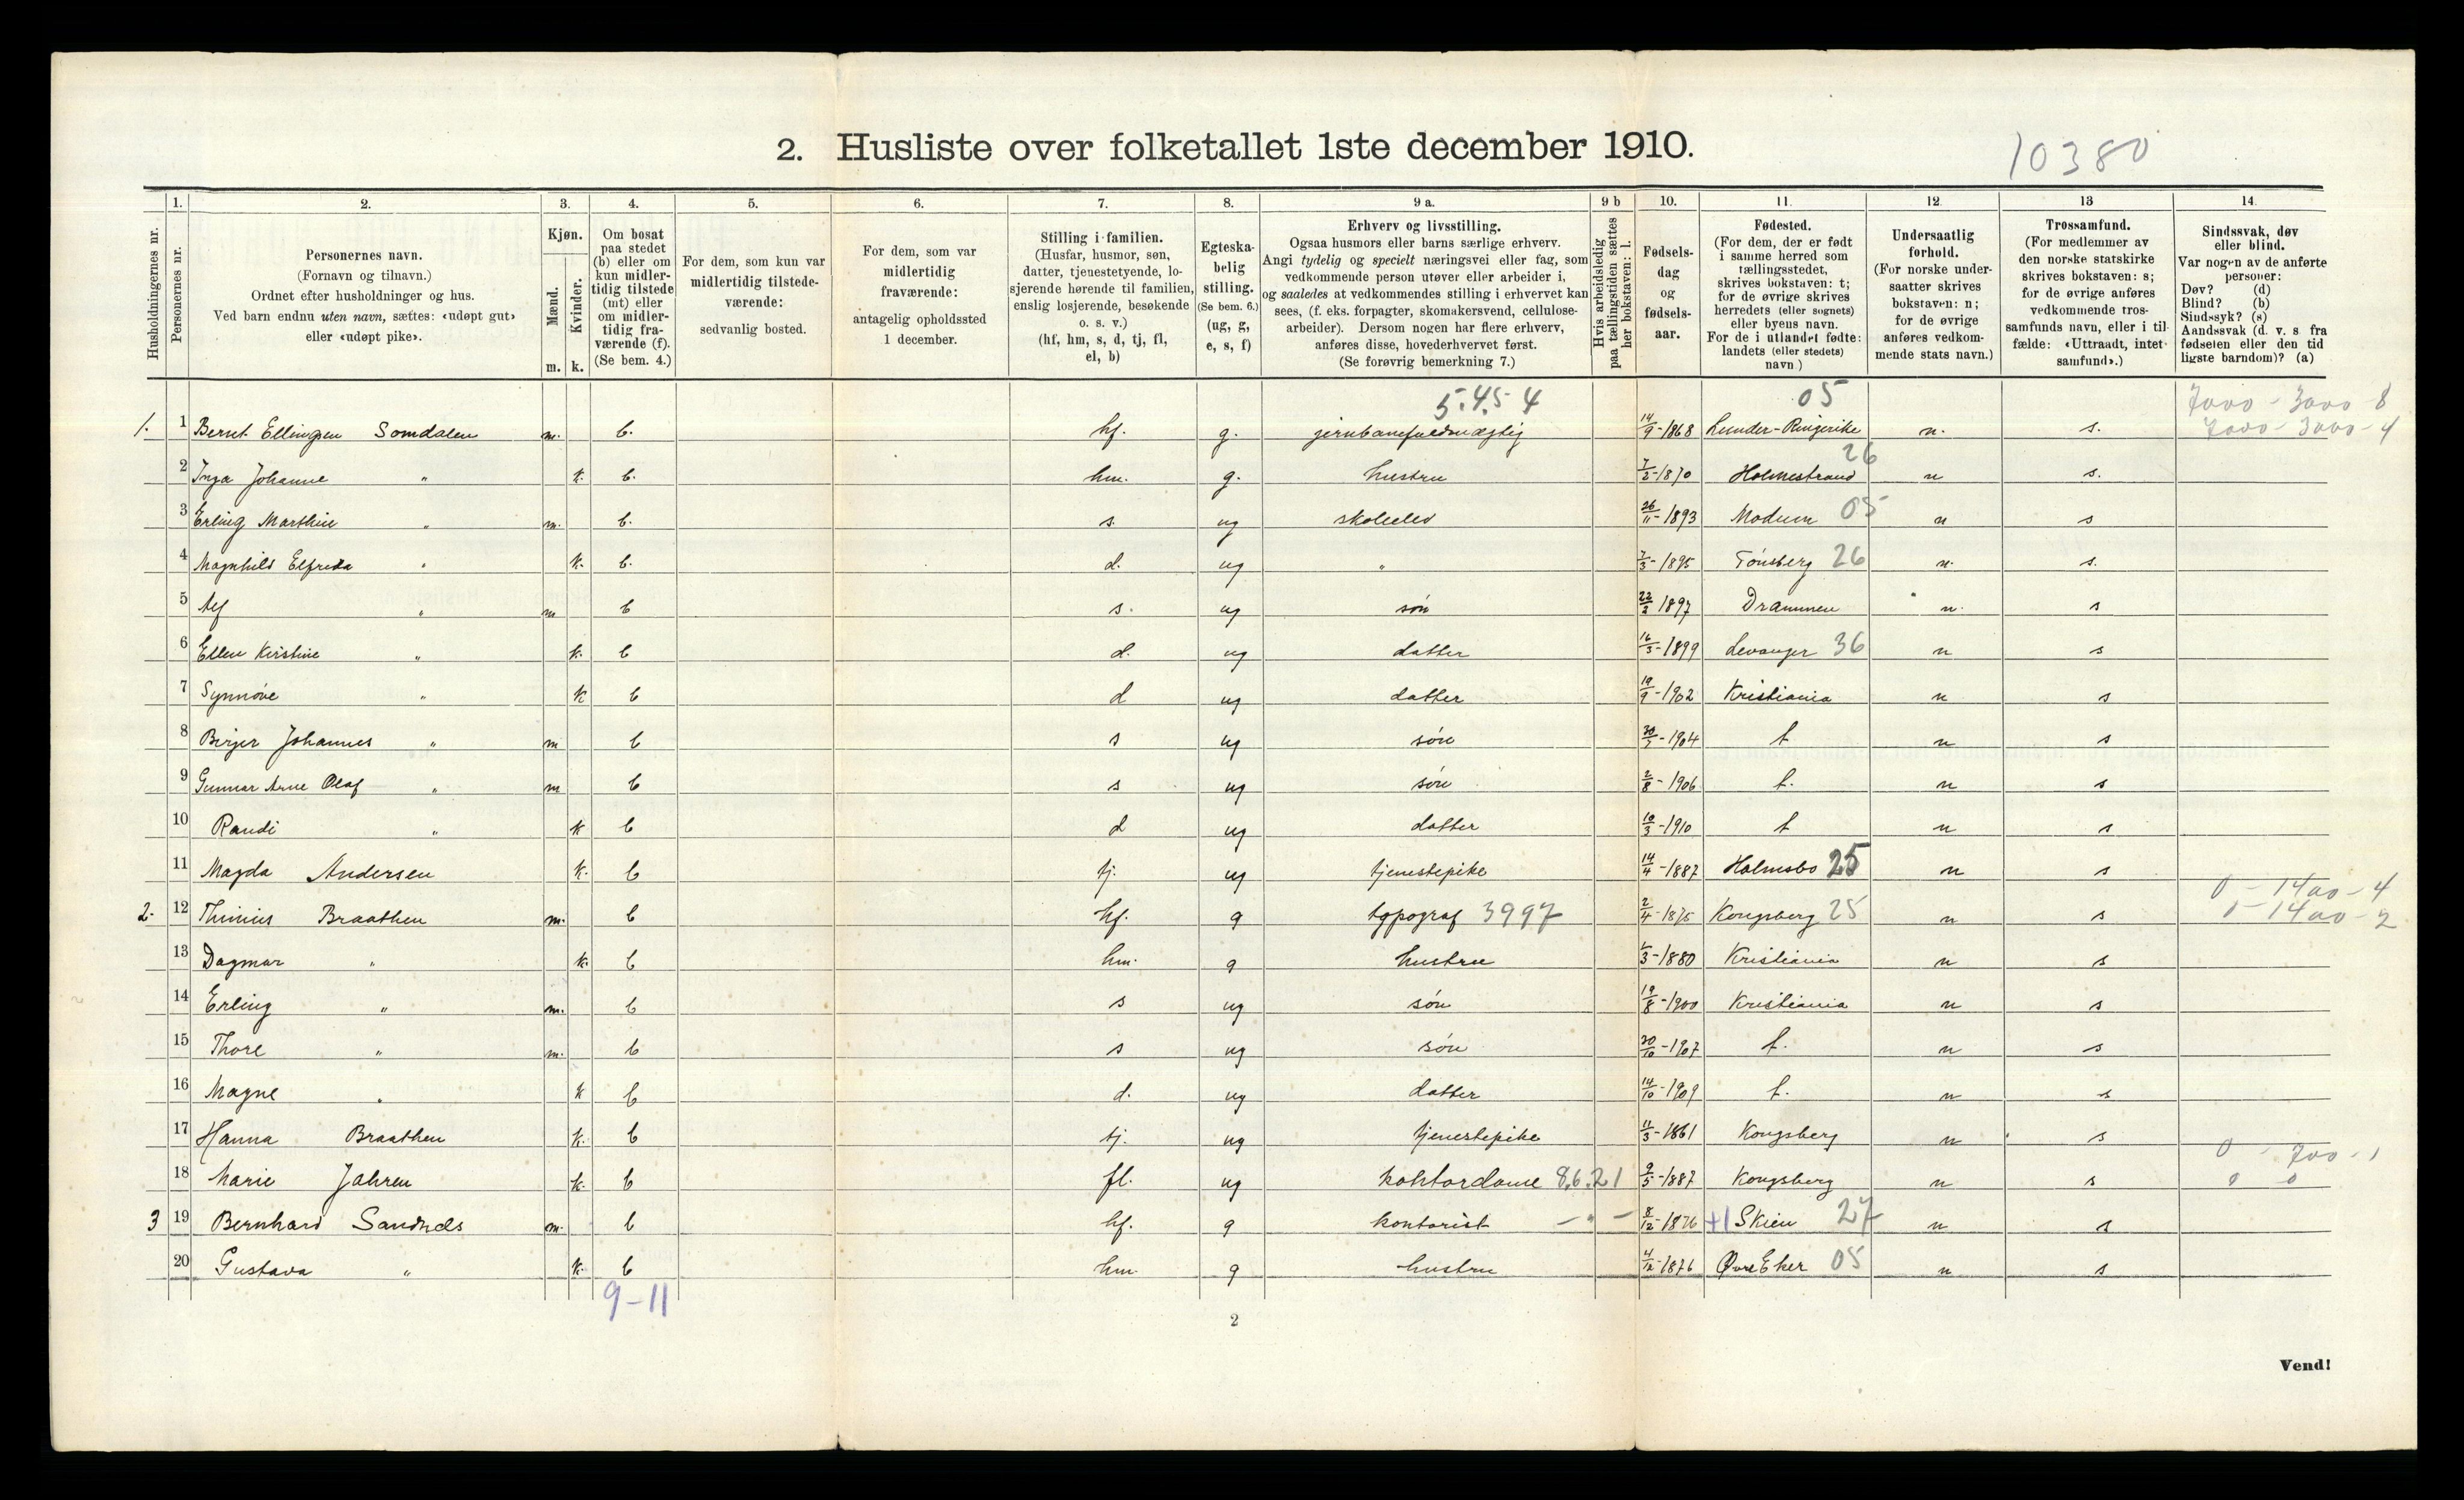 2. Husliste over folketallet 1ste december 1910.
10380
Husholdningernes nr.
1. Personernes nr.
2. Personernes navn.
(Fornavn og tilnavn.)
Ordnet efter husholdninger og hus.
Ved barn endnu uten navn, sættes: «udøpt gut»
eller «udøpt pike».
3. Kjøn.
Mænd. m.
Kvinder. k.
4. Om bosat
paa stedet
(b) eller om
kun midler-
tidig tilstede
(mt) eller
om midler-
tidig fra-
værende (f).
(Se bem. 4.)
5. For dem, som kun var
midlertidig tilstede-
værende:
sedvanlig bosted.
6. For dem, som var
midlertidig
fraværende:
antagelig opholdssted
1 december.
7. Stilling i familien.
(Husfar, husmor, søn,
datter, tjenestetyende, lo-
sjerende hørende til familien,
enslig losjerende, besøkende
o. s. v.)
(hf, hm, s, d, tj, fl,
el, b)
8. Egteska-
belig
stilling.
(Se bem. 6.)
(ug, g,
e, s, f)
9 a. Erhverv og livsstilling.
Ogsaa husmors eller barns særlige erhverv.
Angi tydelig og specielt næringsvei eller fag, som
vedkommende person utøver eller arbeider i,
og saaledes at vedkommendes stilling i erhvervet kan
sees, (f. eks. forpagter, skomakersvend, cellulose-
arbeider). Dersom nogen har flere erhverv,
anføres disse, hovederhvervet først.
(Se forøvrig bemerkning 7.)
9 b Hvis arbeidsledig
paa tællingstiden sættes
her bokstaven: l.
10. Fødsels-
dag
og
fødsels-
aar.
11. Fødested.
(For dem, der er født
i samme herred som
tællingsstedet,
skrives bokstaven: t;
for de øvrige skrives
herredets (eller sognets)
eller byens navn.
For de i utlandet fødte:
landets (eller stedets)
navn)
12. Undersaatlig
forhold.
(For norske under-
saatter skrives
bokstaven: n;
for de øvrige
anføres vedkom-
mende stats navn.)
13 Trossamfund.
(For medlemmer av
den norske statskirke
skrives bokstaven: s;
for de øvrige anføres
vedkommende tros-
samfunds navn, eller i til-
fælde: «Uttraadt, intet
samfund».)
14. Sindssvak, døv
eller blind.
Var nogen av de anførte
personer:
Døv? (d)
Blind? (b)
Sindssyk? (s)
Aandssvak (d. v. s. fra
fødselen eller den tid
ligste barndom)? (a)
5.45 4 05 7000 - 3000 8
1. 1 Bernt Ellingsen Somdalen m. b. hf. g. jernbanefuldmægtig 14/9-1868 Lunder-Ringerike n. s. 7000 - 3000 - 4
2 Inga Johanne " k. b. hm. g. hustru 7/2-1870 Holmestrand 26 n s.
3 Erling Marthin " m. b. s. ug skoleelev 26/11-1893 Modum 05 n s
4 Magnhild Elfrida " k. b. d. ug " 7/3-1895 Tönsberg 26 n. s.
5 Alf " m b s. ug sön 22/2 1897 Drammen n. s
6 Ellen Kirstine " k. b d. ug datter 16/3-1899 Levanger 36 n s
7 Synnöve " k b d ug datter 19/9-1902 Kristiania n s
8 Birger Johannes " m b s ug sön 30/7-1904 t n s
9 Gunnar Arne Olaf " m b s ug sön 2/8-1906 t. n s
10 Randi " k b d ug datter 10/3-1910 t n s
11 Magda Andersen k. b tj. ug tjenestepike 14/4-1887 Holmsbo 25 n s
0 - 1400 - 4
2. 12 Thinius Braathen m. b hf. g typograf 3997 2/4-1875 Kongsberg 25 n s 0 - 1400 - 2
13 Dagmar " k. b hm. g hustru /3-1880 Kristiania n s
14 Erling " m. b s ug sön 19/8-1900 Kristiania n s
15 Thore " m. b s ug sön 20/10-1907 t. n s
16 Magne " k b d. ug datter 14/10-1909 t. n s
17 Hanna Braathen k. b tj. ug tjenestepike 11/3-1861 Kongsberg n s
0 - 700 - 1
18 Marie Jahren k. b fl. ug kontordame 8.6.21 9/5-1887 Kongsberg n s 0 0
3 19 Bernhard Sandnæs m. b hf. g kontorist - " - 8/12-1876 +1 Skien 27 n s
20 Gustava " k. b hm. g hustru 4/12-1876 Øvre Eker 05 n s
9-11
2
Vend!